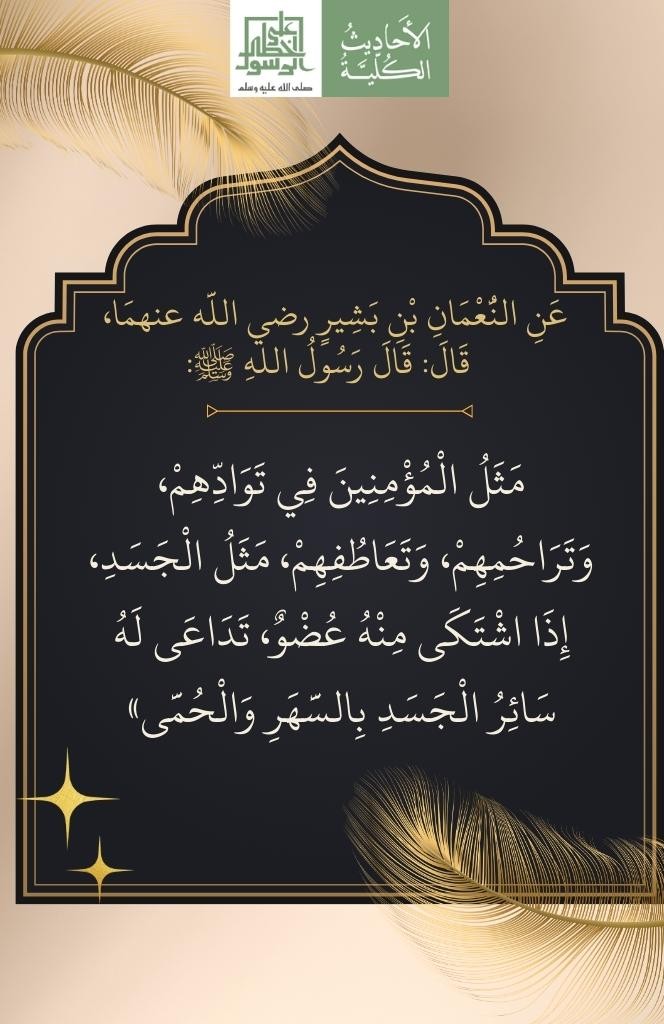 الأَحَادِيثُ
الكُلِّيَّةُ
على
خطى
الرسول
صلى الله عليه وسلم
عَنِ النُّعْمَانِ بْنِ بَشِيرٍ رضي اللّه عنهمَا،
قَالَ: قَالَ رَسُولُ اللهِ ﷺ:
مَثَلُ الْمُؤْمِنِينَ فِي تَوَادِّهِمْ،
وَتَرَاحُمِهِمْ، وَتَعَاطُفِهِمْ، مَثَلُ الْجَسَدِ،
إِذَا اشْتَكَى مِنْهُ عُضْوٌ، تَدَاعَى لَهُ
سَائِرُ الْجَسَدِ بِالسّهَرِ وَالْحُمّى»